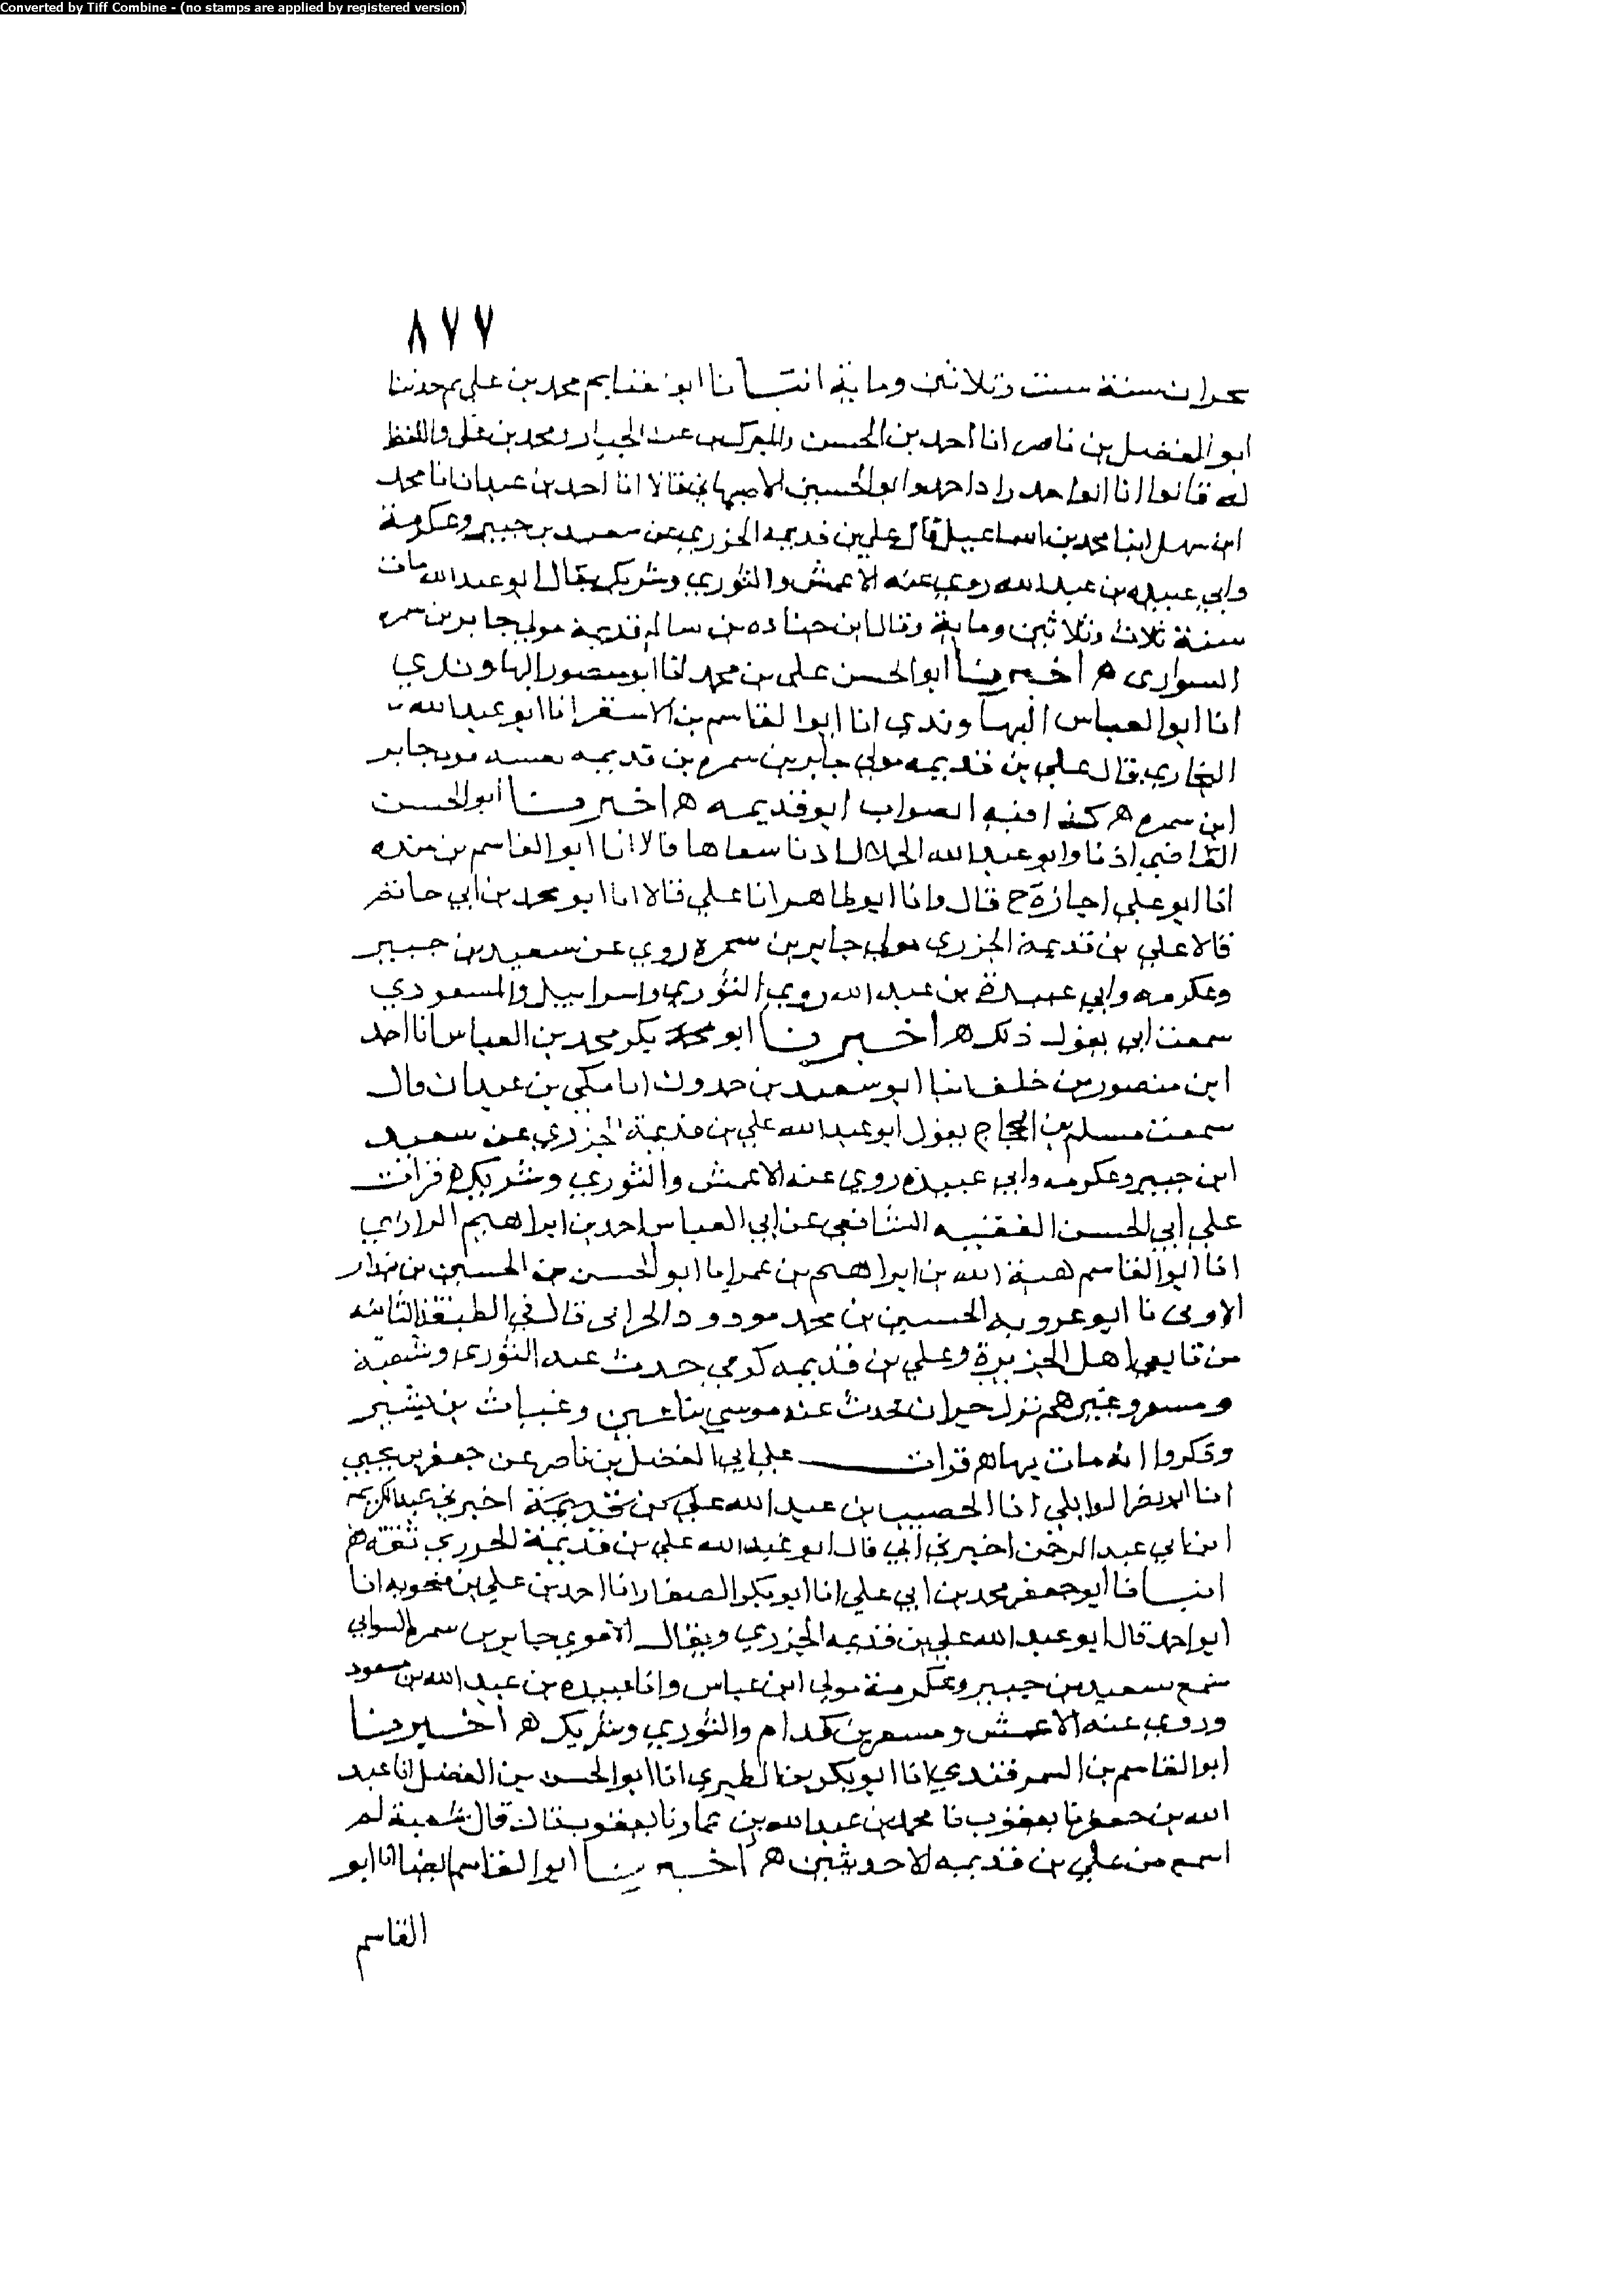 Converted by Tiff Combine - (no stamps are applied by registered version)
٨٧٧
بحران سنة ست وثلاثين وماية انبانا ابو غنايم محمد بن علي ثم حدثنا
ابو الفضل بن ناصر انا احمد بن الحسن والمبرك بن عبد الجبار ومحمد بن علي واللفظ
له قالوا انا ابو احمد زاد احمد وابو الحسين الاصبهاني قالا انا احمد بن عبدان انا محمد
ابن سهل انبا محمد بن اسماعيل قال علي بن قديمه الجزري عن سعيد بن جبير وعكرمة
وابي عبيده بن عبد الله روي عنه الاعمش والثوري وشريك يقال ابو عبد الله مات
سنة ثلاث وثلاثين وماية وقال ابن جناده بن سالم قديمة مولي جابر بن سمره
السوارى ه اخبرنا ابو الحسن علي بن محمد انا ابو منصور النهاوندي
انا ابو العباس النهاوندي انا ابو القاسم بن الاسقر انا ابو عبد الله
البخاري قال علي بن قديمه مولي جابر بن سمره بن قديمه نفسه مولي جابر
ابن سمره ه كذا فيه الصواب ابو قديمه ه اخبرنا ابو الحسن
القاضي اذنا وابو عبد الله الخلال اذنا سماها قالا انا ابو القاسم بن منده
انا ابو علي اجازة ح قال وانا ابو طاهر انا علي قالا انا ابو محمد بن ابي حاتم
قالا علي بن قديمة الجزرى مولي جابر بن سمره روي عن سعيد بن جبير
وعكرمه وابي عبيدة بن عبد الله روي الثوري واسراييل والمسعودي
سمعت ابي يقول ذلك ه اخبرنا ابو محمد بكر محمد بن العباس انا احمد
ابن منصور بن خلف انبا ابو سعيد بن حمدون انا مكي بن عبدان قال
سمعت مسلم بن الحجاج يقول ابو عبد الله علي بن قديمة الجزري عن سعيد
ابن جبير وعكرمه وابي عبيده روي عنه الاعمش والثوري وشريك ه قرات
علي ابي الحسن الفقيه الشافعي عن ابي العباس احمد بن ابراهيم الرازي
انا ابو القاسم هبة الله بن ابراهيم بن عمر انا ابو الحسن بن الحسين بن بندار
الاوىى نا ابو عروبه الحسين بن محمد مودود الحرانى قال في الطبقة الثانيه
من تابعي اهل الجزيرة وعلي بن قديمه كرمي حدث عنه الثوري وشعبة
ومسعر وغيرهم نزل حران تحدث عنه موسي بن اعين وغياث بن بشير
وذكروا انه مات بها ه قرات علي ابي الفضل بن ناصر عن جعفر بن يحيي
انا ابو نصر الوايلي انا الخصيب بن عبد الله علي بن قديمة اخبرني عبد الكريم
ابن ابي عبد الرحمن اخبرني ابي قال ابو عبد الله علي بن قديمة الجزري ثقة ه
انبانا ابو جعفر محمد بن ابي علي انا ابو بكر الصفار انا احمد بن علي بن منجويه انا
ابو احمد قال ابو عبد الله علي بن قديمه الجزري ويقال الاموي جابر بن سمره السوابي
سمع سعيد بن جبير وعكرمة مولي ابن عباس وابا عبيده بن عبد الله بن مسعود
وروي عنه الاعمش ومسعر بن كدام والثوري وشريك ه اخبرنا
ابو القاسم بن السمرقندي انا ابو بكر بن الطبري انا ابو الحسن بن الفضل انا عبد
الله بن جعفر نا يعقوب نا محمد بن عبد الله بن عمار نا يعقوب قال قال شعبة لم
اسمع من علي بن قديمه الا حديثين ه اخبرنا ابو القاسم ايضا انا ابو
القاسم